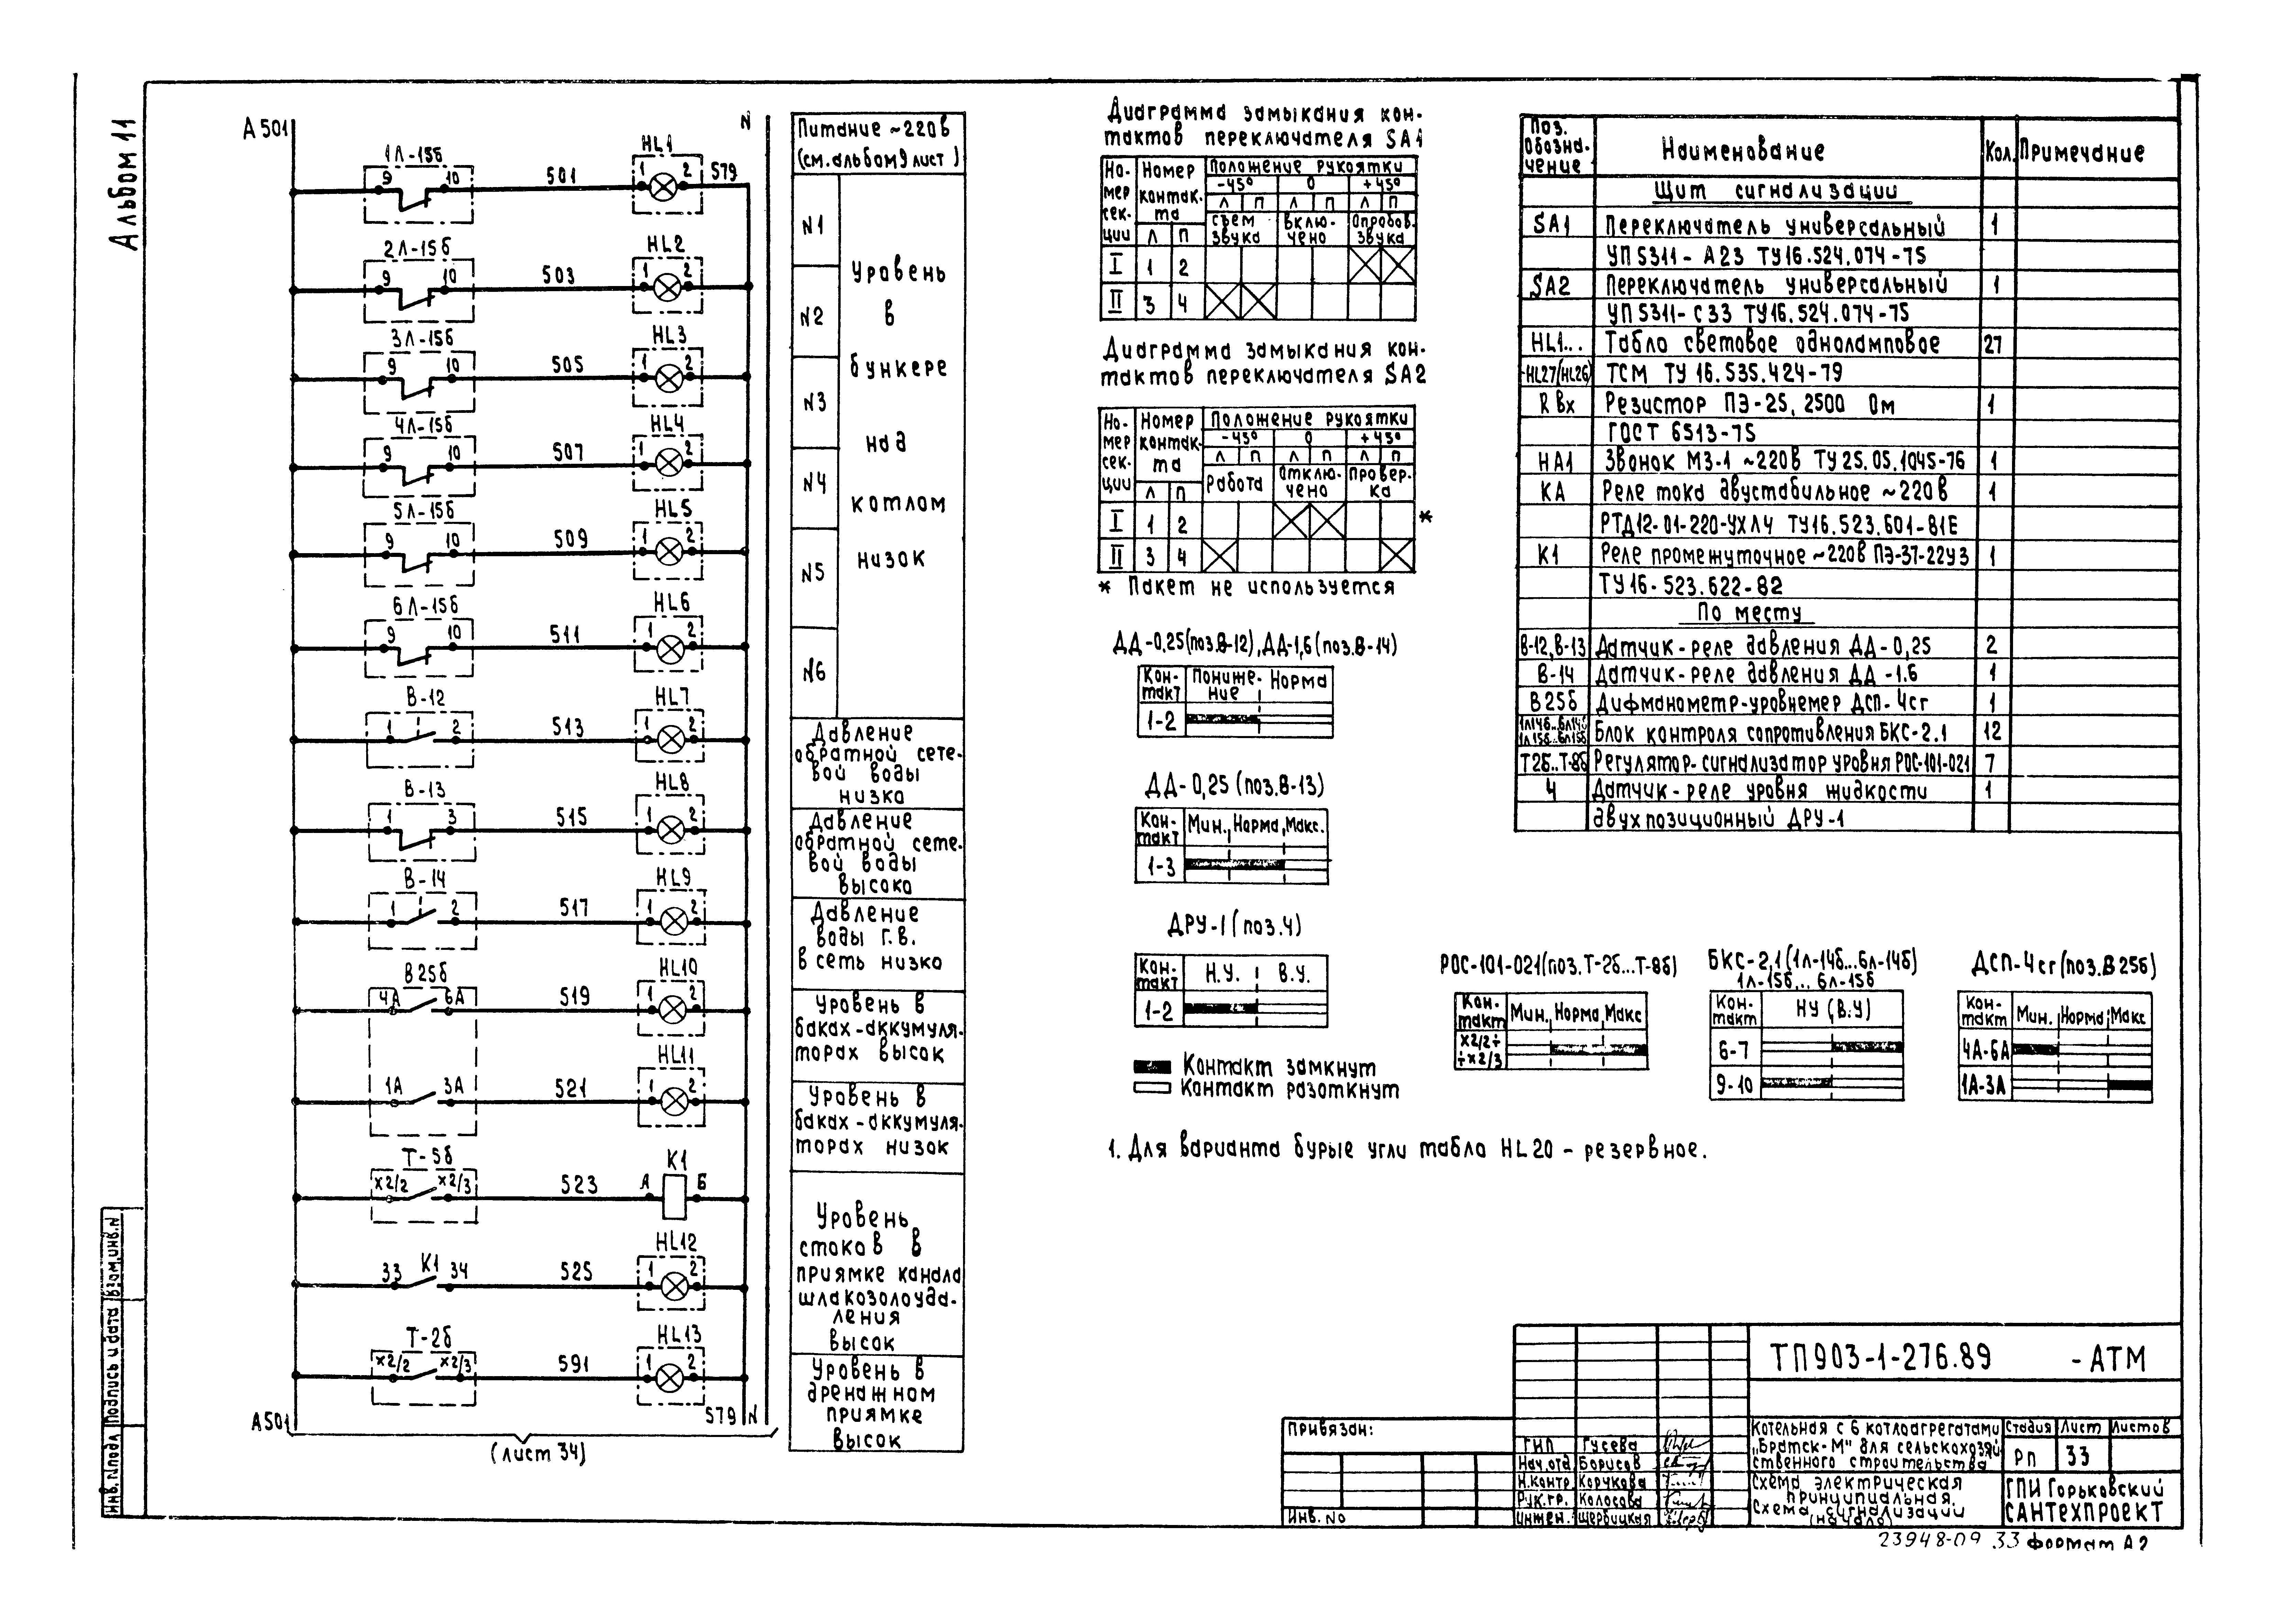 Альбом 11
А501
N
1Л-15б
9 10
501
HL1
1 2
579
2Л-15б
9 10
503
HL2
1 2
3Л-15б
9 10
505
HL3
1 2
4Л-15б
9 10
507
HL4
1 2
5Л-15б
9 10
509
HL5
1 2
6Л-15б
9 10
511
HL6
1 2
В-12
1 2
513
HL7
1 2
В-13
1 3
515
HL8
1 2
В-14
1 2
517
HL9
1 2
В25б
4А 6А
519
HL10
1 2
1А 3А
521
HL11
1 2
Т-5б
Х2/2 Х2/3
523
К1
А Б
33 К1 34
525
HL12
1 2
Т-2б
Х2/2 Х2/3
591
HL13
1 2
А501
579 N
(лист 34)
Питание ~220в
(см.альбом9 лист )
N1
N2
N3
N4
N5
N6
Уровень
в
бункере
над
котлом
низок
Давление
обратной сете-
вой воды
низко
Давление
обратной сете-
вой воды
высоко
Давление
воды г.в.
в сеть низко
Уровень в
баках-аккумуля-
торах высок
Уровень в
баках-аккумуля-
торах низок
Уровень
стоков в
приямке канала
шлакозолоуда-
ления
высок
Уровень в
дренажном
приямке
высок
Диаграмма замыкания кон-
тактов переключателя SA1
Но-
мер
сек-
ции
Номер
контак-
та
Положение рукоятки
-45° 0 +45°
Л П Л П Л П
Съем
звука
Вклю-
чено
Опробов.
звука
Л П
I 1 2
II 3 4
Диаграмма замыкания кон-
тактов переключателя SA2
Но-
мер
сек-
ции
Номер
контак-
та
Положение рукоятки
-45° 0 +45°
Л П Л П Л П
Работа
Отклю-
чено
Провер-
ка
Л П
I 1 2 *
II 3 4
* Пакет не используется
ДД-0,25(поз.В-12),ДД-1,6(поз.В-14)
Кон-
такт
Пониже-
ние
Норма
1-2
ДД-0,25 (поз.В-13)
Кон-
такт
Мин. Норма Макс.
1-3
ДРУ-1(поз.4)
Кон-
такт
Н.У. В.У.
1-2
Контакт замкнут
Контакт разоткнут
РОС-101-021(поз.Т-2б...Т-8б)
Кон-
такт
Мин. Норма Макс
Х2/2÷
÷Х2/3
БКС-2,1(1Л-14б...6Л-14б)
1Л-15б... 6Л-15б
Кон-
такт
НУ (В.У)
6-7
9-10
ДСП-4сг(поз.В25б)
Кон-
такт
Мин. Норма Макс
4А-6А
1А-3А
1. Для варианта бурые угли табло HL20 - резервное.
Поз.
Обозна-
чение
Наименование
Кол.
Примечание
Щит сигнализации
SA1 Переключатель универсальный 1
УП5311-А23 ТУ16.524.074-75
SA2 Переключатель универсальный 1
УП5311-С33 ТУ16.524.074-75
HL1... Табло световое одноламповое 27
HL27(HL26) ТСМ ТУ 16.535.424-79
Rвх Резистор ПЭ-25, 2500 Ом 1
ГОСТ 6513-75
НА1 Звонок МЗ-1 ~220в ТУ25.05.1045-76 1
КА Реле тока двустабильное ~220в 1
РТД12-01-220-УХЛ4 ТУ16.523.601-81Е
К1 Реле промежуточное ~220в ПЭ-37-22У3 1
ТУ16-523.622-82
По месту
В-12,В-13 Датчик-реле давления ДД-0,25 2
В-14 Датчик-реле давления ДД-1.6 1
В25б Дифманометр-уровнемер ДСП-4сг 1
1Л14б..6Л14б
1Л15б..6Л15б
Блок контроля сопротивления БКС-2.1 12
Т2б..Т-8б Регулятор-сигнализатор уровня РОС-101-021 7
4 Датчик-реле уровня жидкости 1
двухпозиционный ДРУ-1
ТП903-1-276.89 -АТМ
Привязан:
Инв. No
ГИП Гусева
Нач.отд. Борисов
Н.контр. Корчкова
Рук.гр. Колосова
Инжен. Щербицкая
Котельная с 6 котлоагрегатами
„Братск-М" для сельскохозяй
ственного строительства
Стадия Лист Листов
РП 33
Схема электрическая
принципиальная.
Схема сигнализации
(начало)
ГПИ Горьковский
САНТЕХПРОЕКТ
23948-09 33 Формат А2
Инв.Nподл Подпись и дата Взам.инв.N